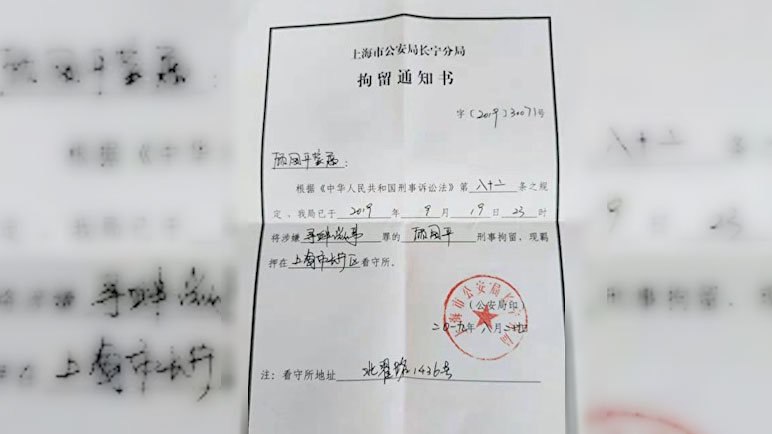 上海市公安局长宁分局
拘留通知书
字〔2019〕30071号
顾国平家属：
根据《中华人民共和国刑事诉讼法》第八十二条之规
定，我局已于2019年9月19日23时
将涉嫌寻衅滋事罪的顾国平刑事拘留，现羁
押在上海市长宁区看守所。
（公安局印）
二〇一九年八月二十日
注：看守所地址北翟路1436号